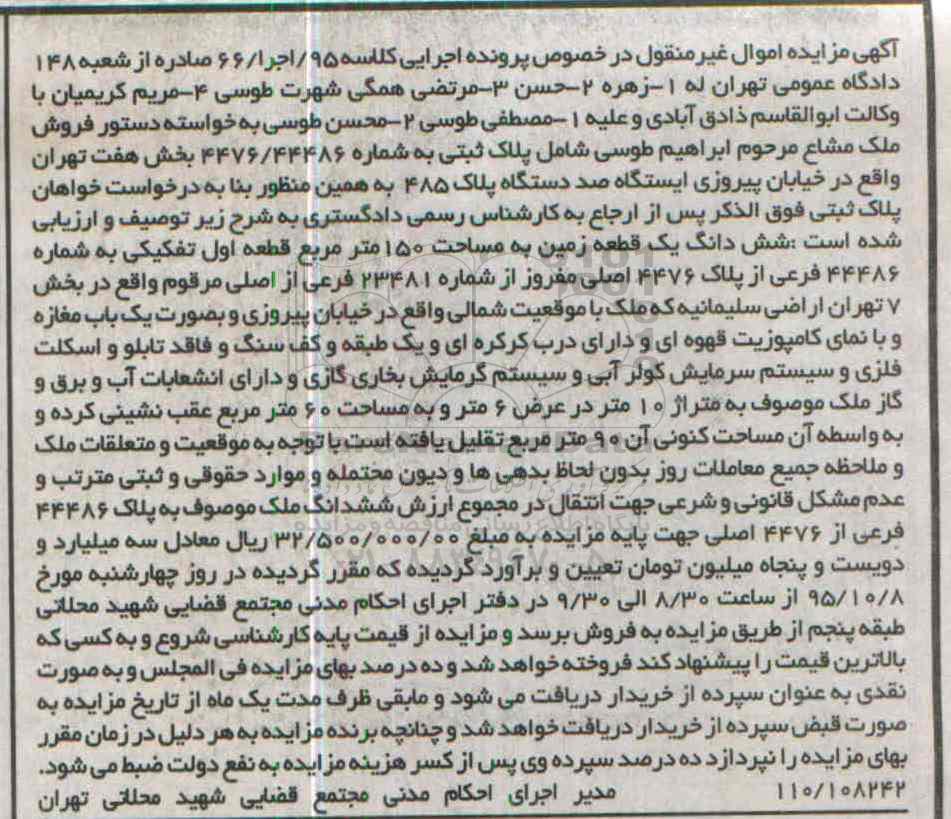 آگهی مزایده اموال غیر منقول در خصوص پرونده اجرایی کلاسه ۹۵/اجرا/۶۶ صادره از شعبه ۱۴۸
دادگاه عمومی تهران له ۱-زهره ۲-حسن ۳-مرتضی همگی شهرت طوسی ۴-مریم کریمیان با
وکالت ابوالقاسم ذاذق آبادی و علیه ۱-مصطفی طوسی ۲-محسن طوسی به خواسته دستور فروش
ملک مشاع مرحوم ابراهیم طوسی شامل پلاک ثبتی به شماره ۴۴۷۶/۴۴۴۸۶ بخش هفت تهران
واقع در خیابان پیروزی ایستگاه صد دستگاه پلاک ۴۸۵ به همین منظور بنا به درخواست خواهان
پلاک ثبتی فوق الذکر پس از ارجاع به کارشناس رسمی دادگستری به شرح زیر توصیف و ارزیابی
شده است :شش دانگ یک قطعه زمین به مساحت ۱۵۰ متر مربع قطعه اول تفکیکی به شماره
۴۴۴۸۶ فرعی از پلاک ۴۴۷۶ اصلی مفروز از شماره ۲۳۴۸۱ فرعی از اصلی مرقوم واقع در بخش
۷ تهران اراضی سلیمانیه که ملک با موقعیت شمالی واقع در خیابان پیروزی و بصورت یک باب مغازه
و با نمای کامپوزیت قهوه ای و دارای درب کرکره ای و یک طبقه و کف سنگ و فاقد تابلو و اسکلت
فلزی و سیستم سرمایش کولر آبی و سیستم گرمایش بخاری گازی و دارای انشعابات آب و برق و
گاز ملک موصوف به متراژ ۱۰ متر در عرض ۶ متر و به مساحت ۶۰ متر مربع عقب نشینی کرده و
به واسطه آن مساحت کنونی آن ۹۰ متر مربع تقلیل یافته است با توجه به موقعیت و متعلقات ملک
و ملاحظه جمیع معاملات روز بدون لحاظ بدهی ها و دیون محتمله و موارد حقوقی و ثبتی مترتب و
عدم مشکل قانونی و شرعی جهت انتقال در مجموع ارزش ششدانگ ملک موصوف به پلاک ۴۴۴۸۶
فرعی از ۴۴۷۶ اصلی جهت پایه مزایده به مبلغ ۳۲/۵۰۰/۰۰۰/۰۰ ریال معادل سه میلیارد و
دویست و پنجاه میلیون تومان تعیین و برآورد گردیده که مقرر گردیده در روز چهارشنبه مورخ
۹۵/۱۰/۸ از ساعت ۸/۳۰ الی ۹/۳۰ در دفتر اجرای احکام مدنی مجتمع قضایی شهید محلاتی
طبقه پنجم از طریق مزایده به فروش برسد و مزایده از قیمت پایه کارشناسی شروع و به کسی که
بالاترین قیمت را پیشنهاد کند فروخته خواهد شد و ده درصد بهای مزایده فی المجلس و به صورت
نقدی به عنوان سپرده از خریدار دریافت می شود و مابقی ظرف مدت یک ماه از تاریخ مزایده به
صورت قبض سپرده از خریدار دریافت خواهد شد و چنانچه برنده مزایده به هر دلیل در زمان مقرر
بهای مزایده را نپردازد ده درصد سپرده وی پس از کسر هزینه مزایده به نفع دولت ضبط می شود.
۱۱۰/۱۰۸۲۴۲ مدیر اجرای احکام مدنی مجتمع قضایی شهید محلاتی تهران